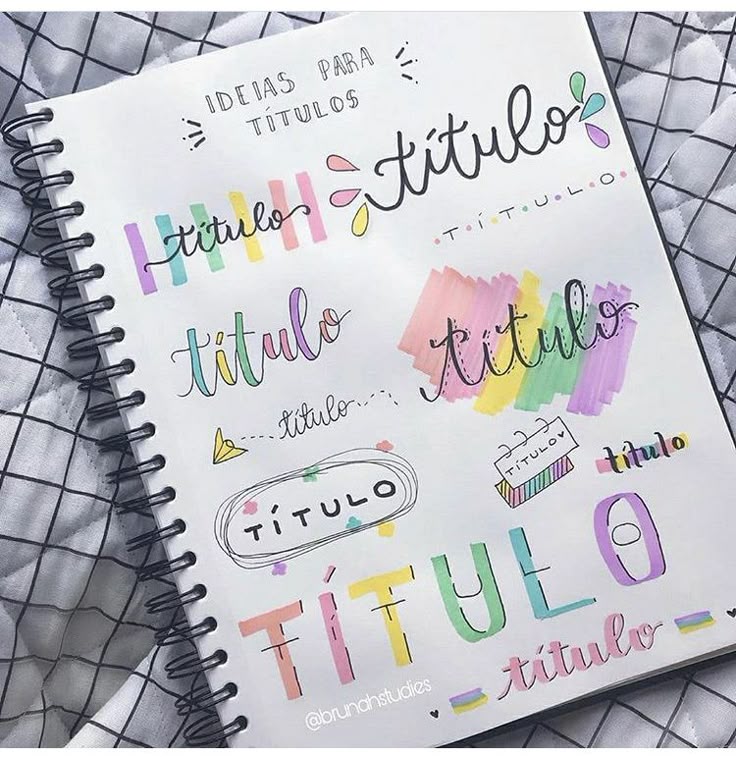 IDEIAS PARA
TÍTULOS
título
título
T Í T U L O
título
título
título
TÍTULO
TÍTULO
título
TÍTULO
título
@brunahstudies